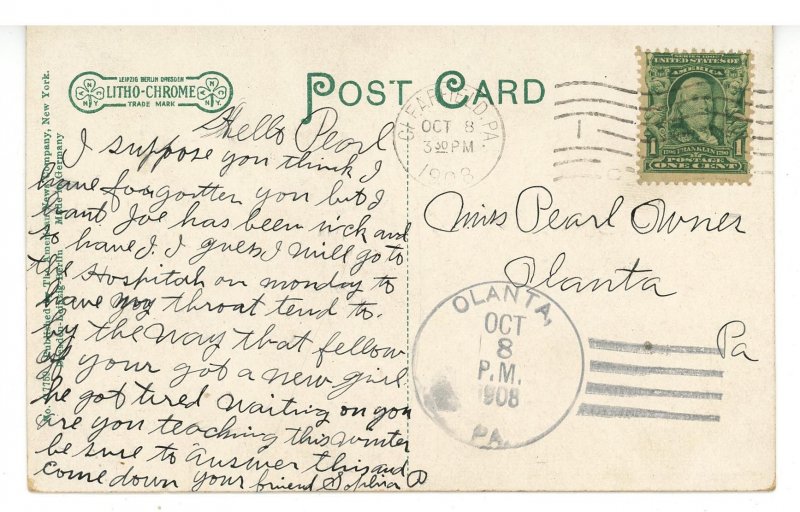 LEIPZIG BERLIN DRESDEN
LITHO-CHROME
TRADE MARK
N N Y
N N Y
POST CARD
No. Published by The American News Company, New York.
Leipzig Berlin Made in Germany
Hello Pearl
I suppose you think I
have forgotten you but I
havnt. Joe has been sick and
so have I. I guess I will go to
the Hospital on monday to
have my throat tend to.
by the way that fellow
of your got a new girl.
he got tired waiting on you
are you teaching this winter
be sure to answer this and
come down your friend Sophia P
CLEARFIELD, PA.
OCT 8
3 30 PM
1908
1
SERIES 1902
UNITED STATES OF
AMERICA
1 FRANKLIN 1
POSTAGE
ONE CENT
Miss Pearl Owner
Olanta
Pa
OLANTA,
OCT
8
P.M.
1908
PA.